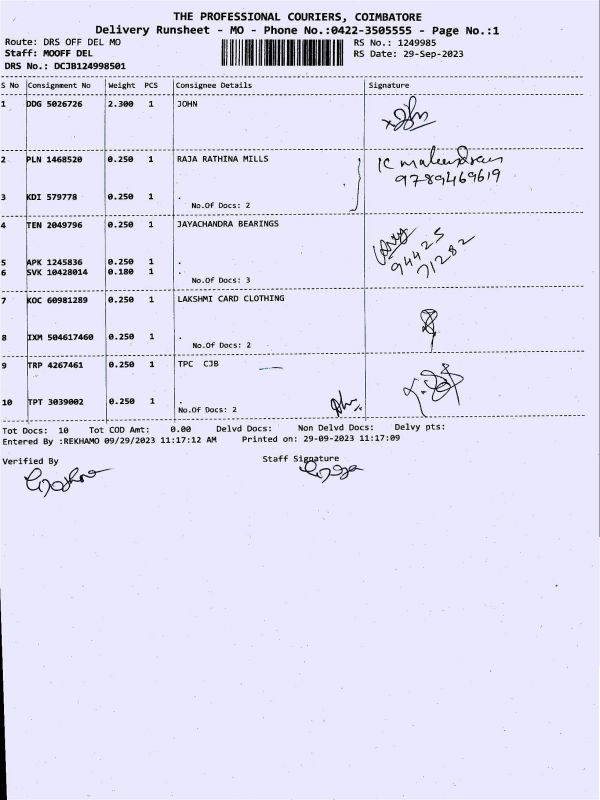 THE PROFESSIONAL COURIERS, COIMBATORE
Delivery Runsheet - MO - Phone No.:0422-3505555 - Page No.:1
Route: DRS OFF DEL MO RS No.: 1249985
Staff: MOOFF DEL RS Date: 29-Sep-2023
DRS No.: DCJB124998501
S No Consignment No Weight PCS Consignee Details Signature
1 DDG 5026726 2.300 1 JOHN
2 PLN 1468520 0.250 1 RAJA RATHINA MILLS
9789469619
3 KDI 579778 0.250 1 .
No.Of Docs: 2
4 TEN 2049796 0.250 1 JAYACHANDRA BEARINGS
94425
71282
5 APK 1245836 0.250 1 .
6 SVK 10428014 0.180 1 .
No.Of Docs: 3
7 KOC 60981289 0.250 1 LAKSHMI CARD CLOTHING
8 IXM 504617460 0.250 1 .
No.Of Docs: 2
9 TRP 4267461 0.250 1 TPC CJB
10 TPT 3039002 0.250 1 .
No.Of Docs: 2
Tot Docs: 10 Tot COD Amt: 0.00 Delvd Docs: Non Delvd Docs: Delvy pts:
Entered By :REKHAMO 09/29/2023 11:17:12 AM Printed on: 29-09-2023 11:17:09
Verified By Staff Signature